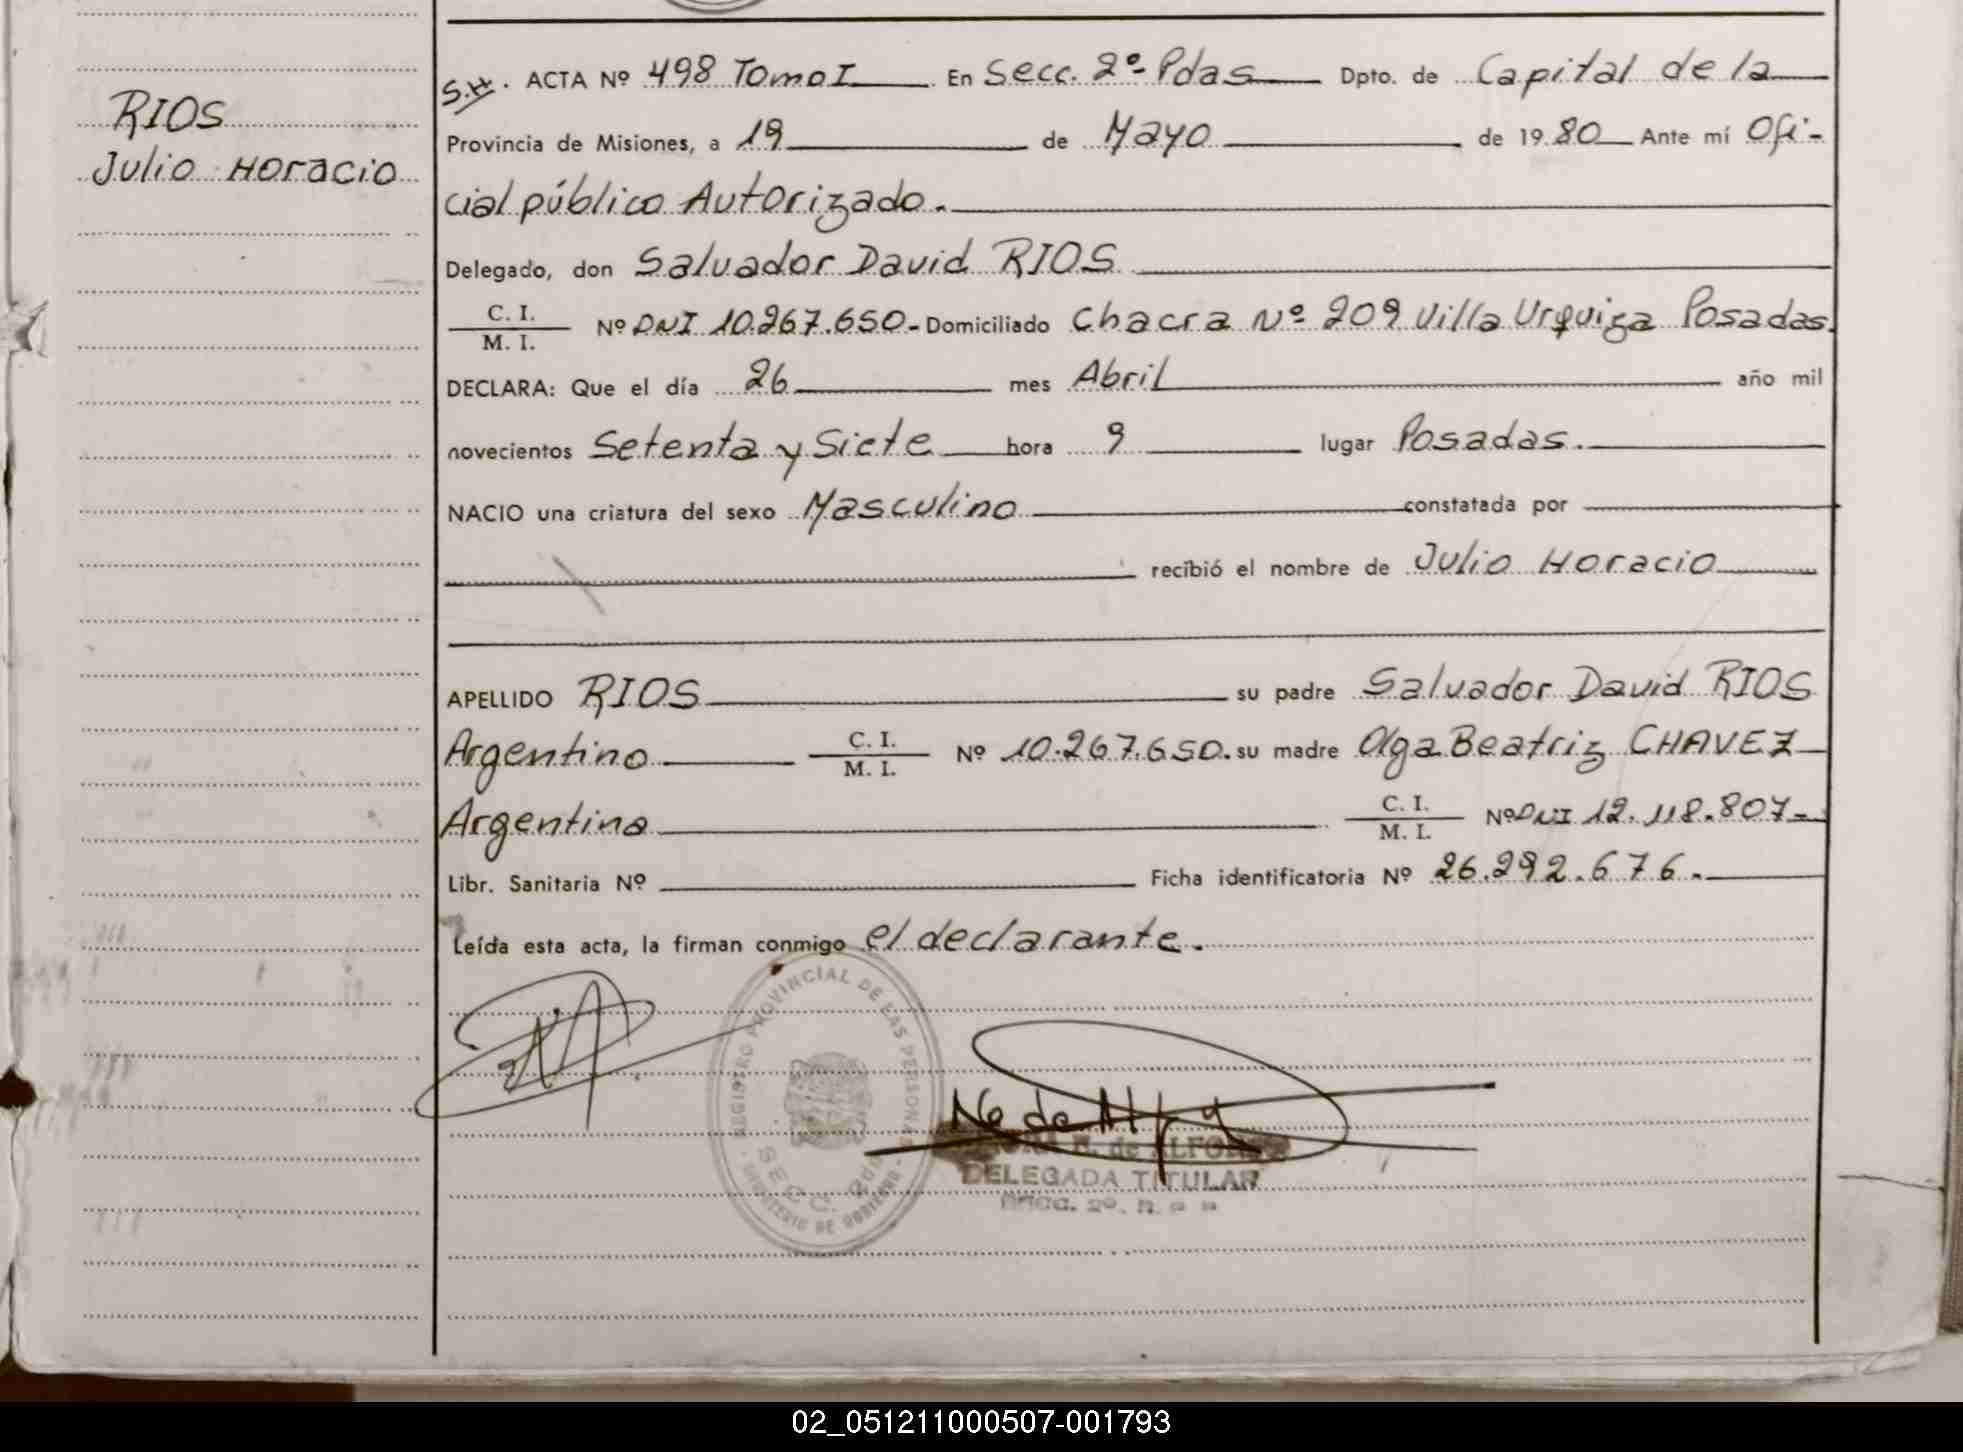 RIOS
Julio Horacio
S.H. ACTA Nº 498 Tomo I En Secc. 2º Pdas Dpto. de Capital de la
Provincia de Misiones, a 19 de Mayo de 1980 Ante mí Ofi-
cial público Autorizado.
Delegado, don Salvador David RIOS
C. I.
M. I.
Nº DNI 10.267.650- Domiciliado Chacra Nº 209 Villa Urquiza Posadas.
DECLARA: Que el día 26 mes Abril año mil
novecientos Setenta y Siete hora 9 lugar Posadas.
NACIO una criatura del sexo Masculino constatada por
recibió el nombre de Julio Horacio
APELLIDO RIOS su padre Salvador David RIOS
Argentino C. I. M. I. Nº 10.267.650. su madre Olga Beatriz CHAVEZ
Argentina C. I. M. I. Nº DNI 12.118.807-
Libr. Sanitaria Nº Ficha identificatoria Nº 26.292.676.
Leída esta acta, la firman conmigo el declarante.
REGISTRO PROVINCIAL DE LAS PERSONAS
MINISTERIO DE GOBIERNO
SECC.
E. de ALFONSO
DELEGADA TITULAR
SECC. 2º.
02_051211000507-001793